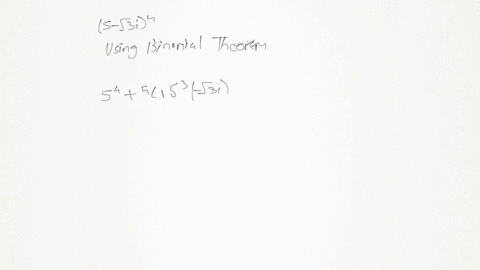 (5-√3i)⁴
Using Binomial Theorem
5⁴ + ⁴C₁ 5³ (-√3i)